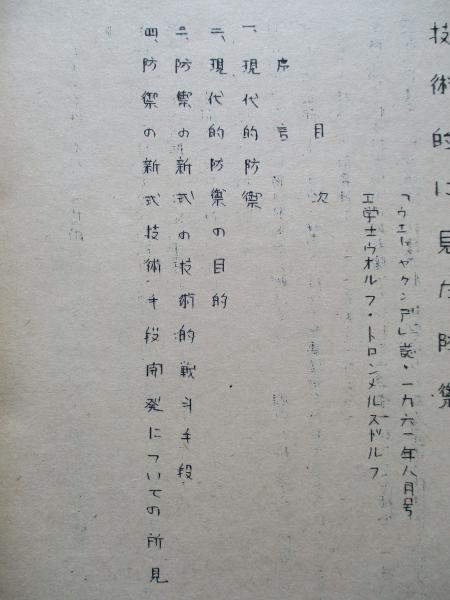 技術的に見た防禦
「ウエールクンデ」誌・一九六一年八月号
工学士ウオルフ・トロンメルスドルフ
目次
序言
一、現代的防禦
二、現代的防禦の目的
三、防禦の新式の技術的戦斗手段
四、防禦の新式技術手段開発についての所見